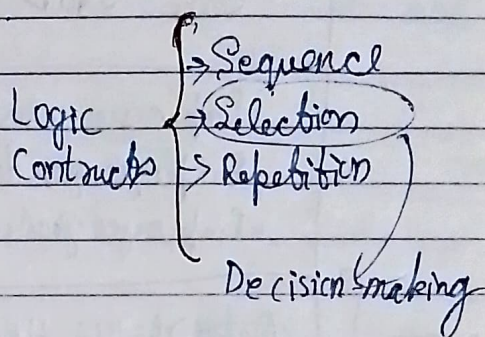 Logic
Contructs
→ Sequence
→ Selection
→ Repetition
Decision making